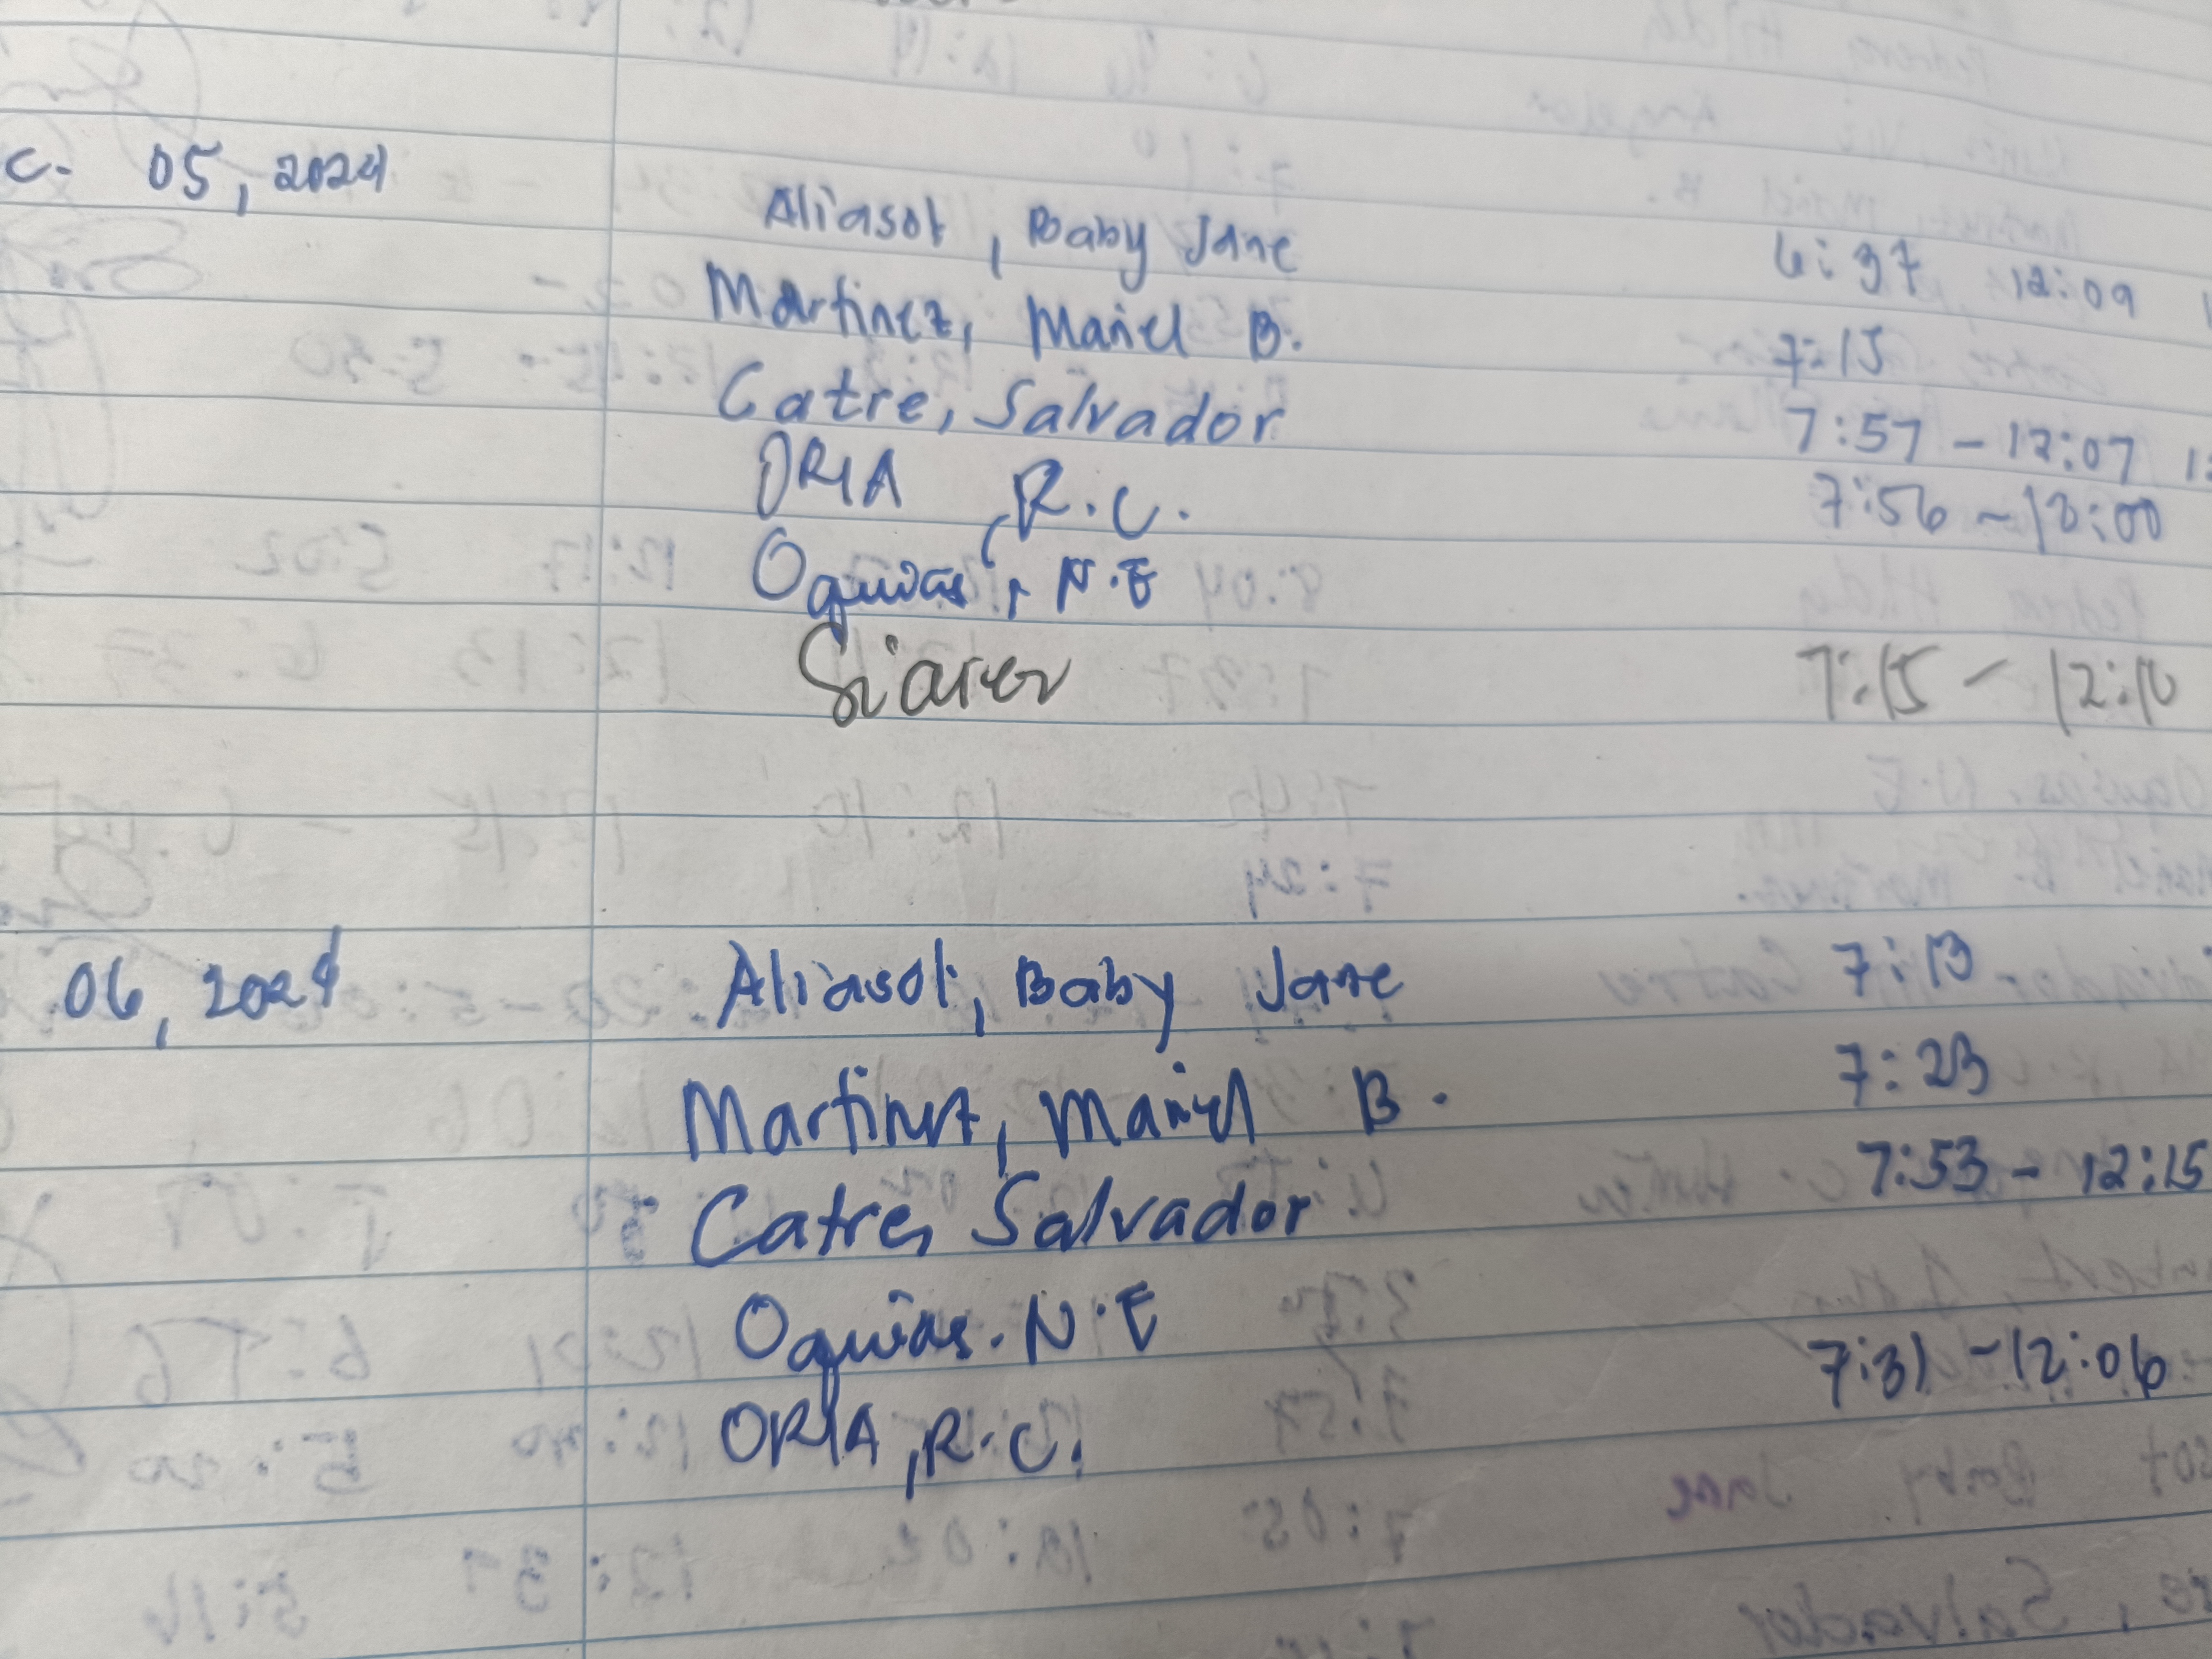 c. 05, 2024
Aliasot, Baby Jane 6:37 12:09
Martinez, Mariel B. 7:15
Catre, Salvador 7:57 - 12:07
ORIA, R.C. 7:56 - 12:00
Oquias, N.E
7:15 - 12:10
06, 2024 Aliasot, Baby Jane 7:13
Martinez, Mariel B. 7:23
Catre, Salvador 7:53 - 12:15
Oquias. N.E
ORIA, R.C. 7:31 - 12:06